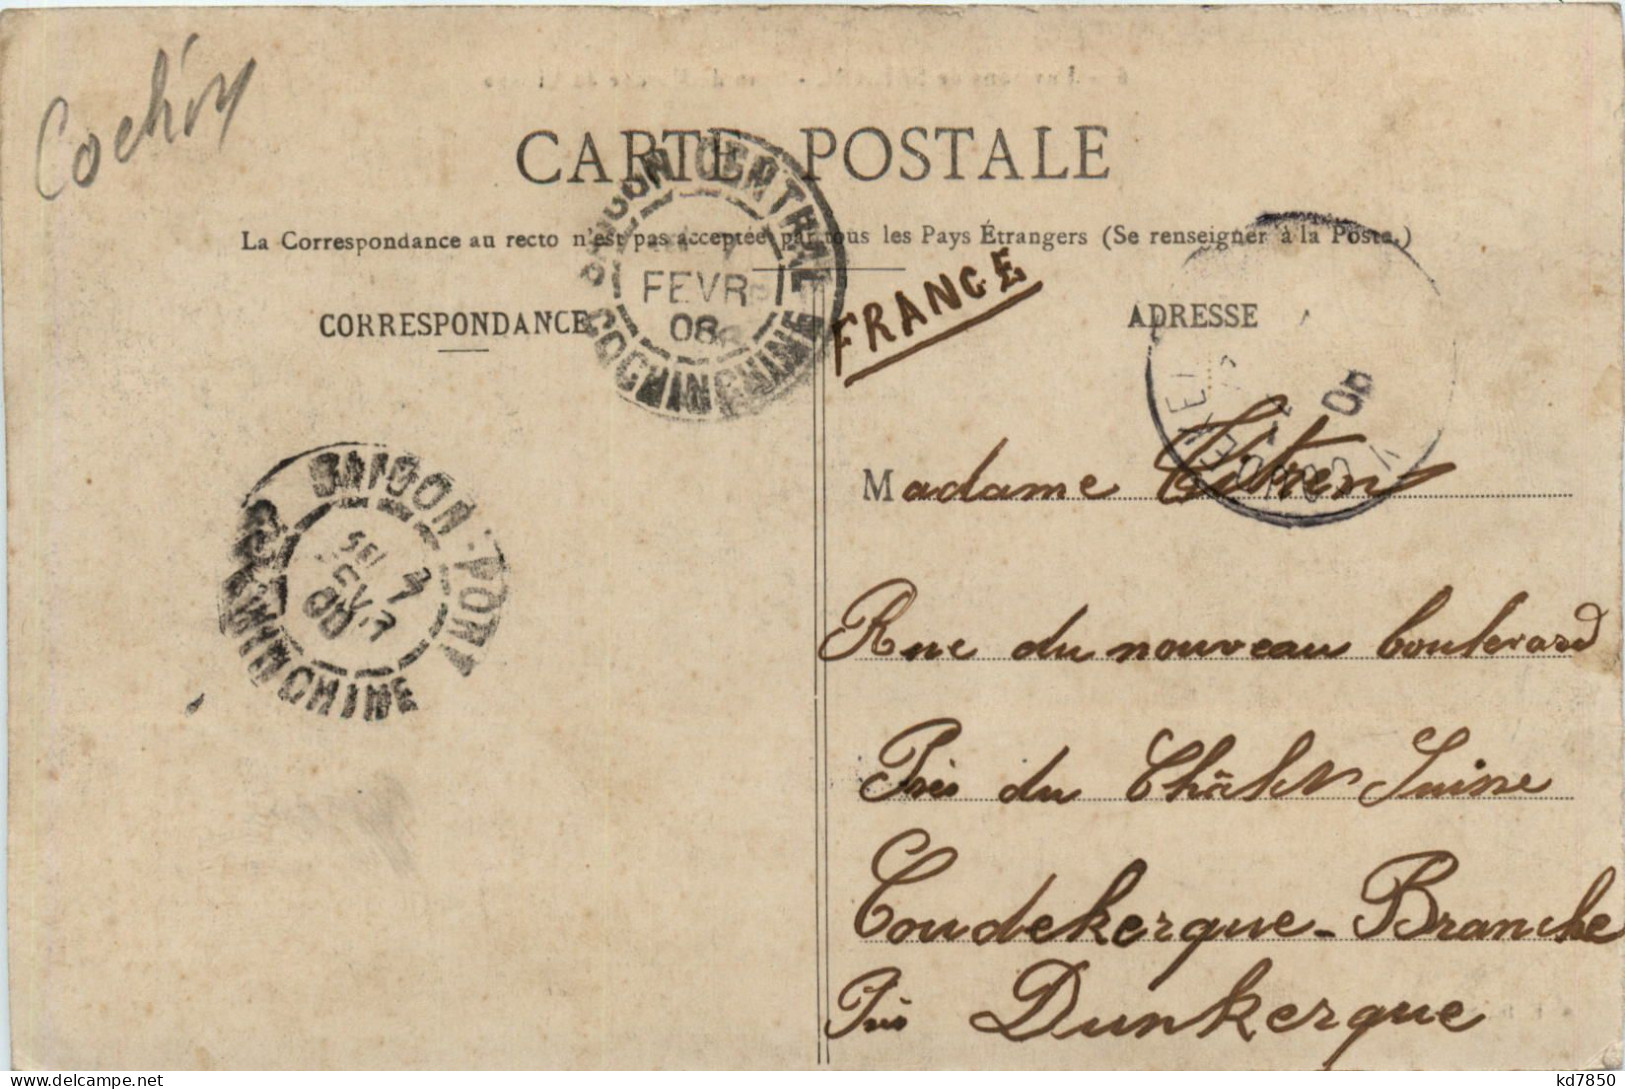 Cochin
CARTE POSTALE
La Correspondance au recto n'est pas acceptée par tous les Pays Étrangers (Se renseigner à la Poste.)
SAIGON CENTRAL
7
FEVR
08
COCHINCHINE
CORRESPONDANCE
FRANCE
ADRESSE
08
Madame
SAIGON-PORT
COCHINCHINE
Rue du nouveau boulevard
Près du Châlet Suisse
Coudekerque-Branche
Près Dunkerque
kd7850